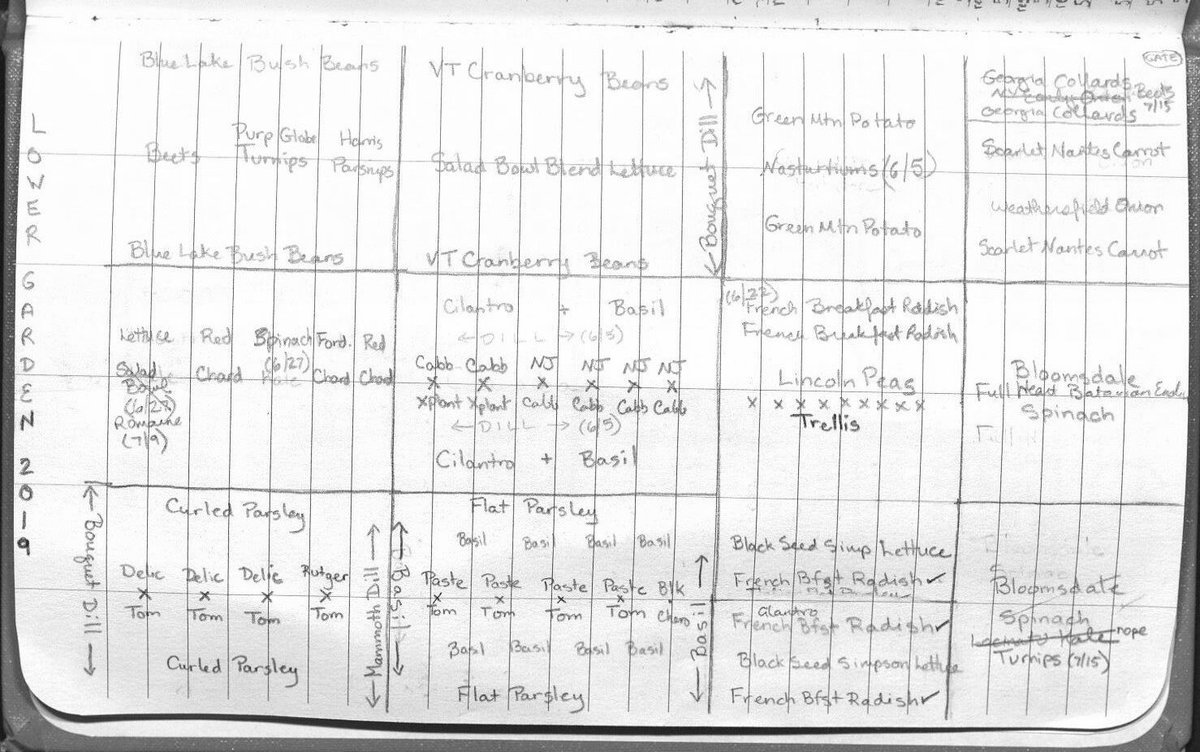 LOWER GARDEN 2019
Blue Lake Bush Beans
Beets
Purp Globe
Turnips
Harris
Parsnips
Blue Lake Bush Beans
VT Cranberry Beans
Salad Bowl Blend Lettuce
VT Cranberry Beans
← Bouquet Dill →
Green Mtn Potato
Nasturtiums (6/5)
Green Mtn Potato
GATE
Georgia Collards
Beets
7/15
Georgia Collards
Scarlet Nantes Carrot
Weathersfield Onion
Scarlet Nantes Carrot
Lettuce
Salad
Bowl
(6/27)
Romaine
(7/9)
Red
Chard
Spinach
(6/27)
Ford.
Chard
Red
Chard
Cilantro + Basil
← DILL → (6/5)
Cabb Cabb NJ NJ NJ NJ
x x x x x x
Xplant Xplant Cabb Cabb Cabb Cabb
← DILL → (6/5)
Cilantro + Basil
(6/22)
French Breakfast Radish
French Breakfast Radish
Lincoln Peas
x x x x x x x x
Trellis
Bloomsdale
Full Head Batavian
Spinach
← Bouquet Dill →
Curled Parsley
Delic Delic Delic Rutger
x x x x
Tom Tom Tom Tom
Curled Parsley
← Mammoth Dill →
← Basil →
Flat Parsley
Basil Basil Basil Basil
Paste Paste Paste Paste Blk
x x x x
Tom Tom Tom Tom Chero
Basil Basil Basil Basil
Flat Parsley
← Basil →
Black Seed Simp Lettuce
French Bfst Radish ✓
Cilantro
French Bfst Radish ✓
Black Seed Simpson Lettuce
French Bfst Radish ✓
Bloomsdale
Spinach
Lacinato Kale nope
Turnips (7/15)